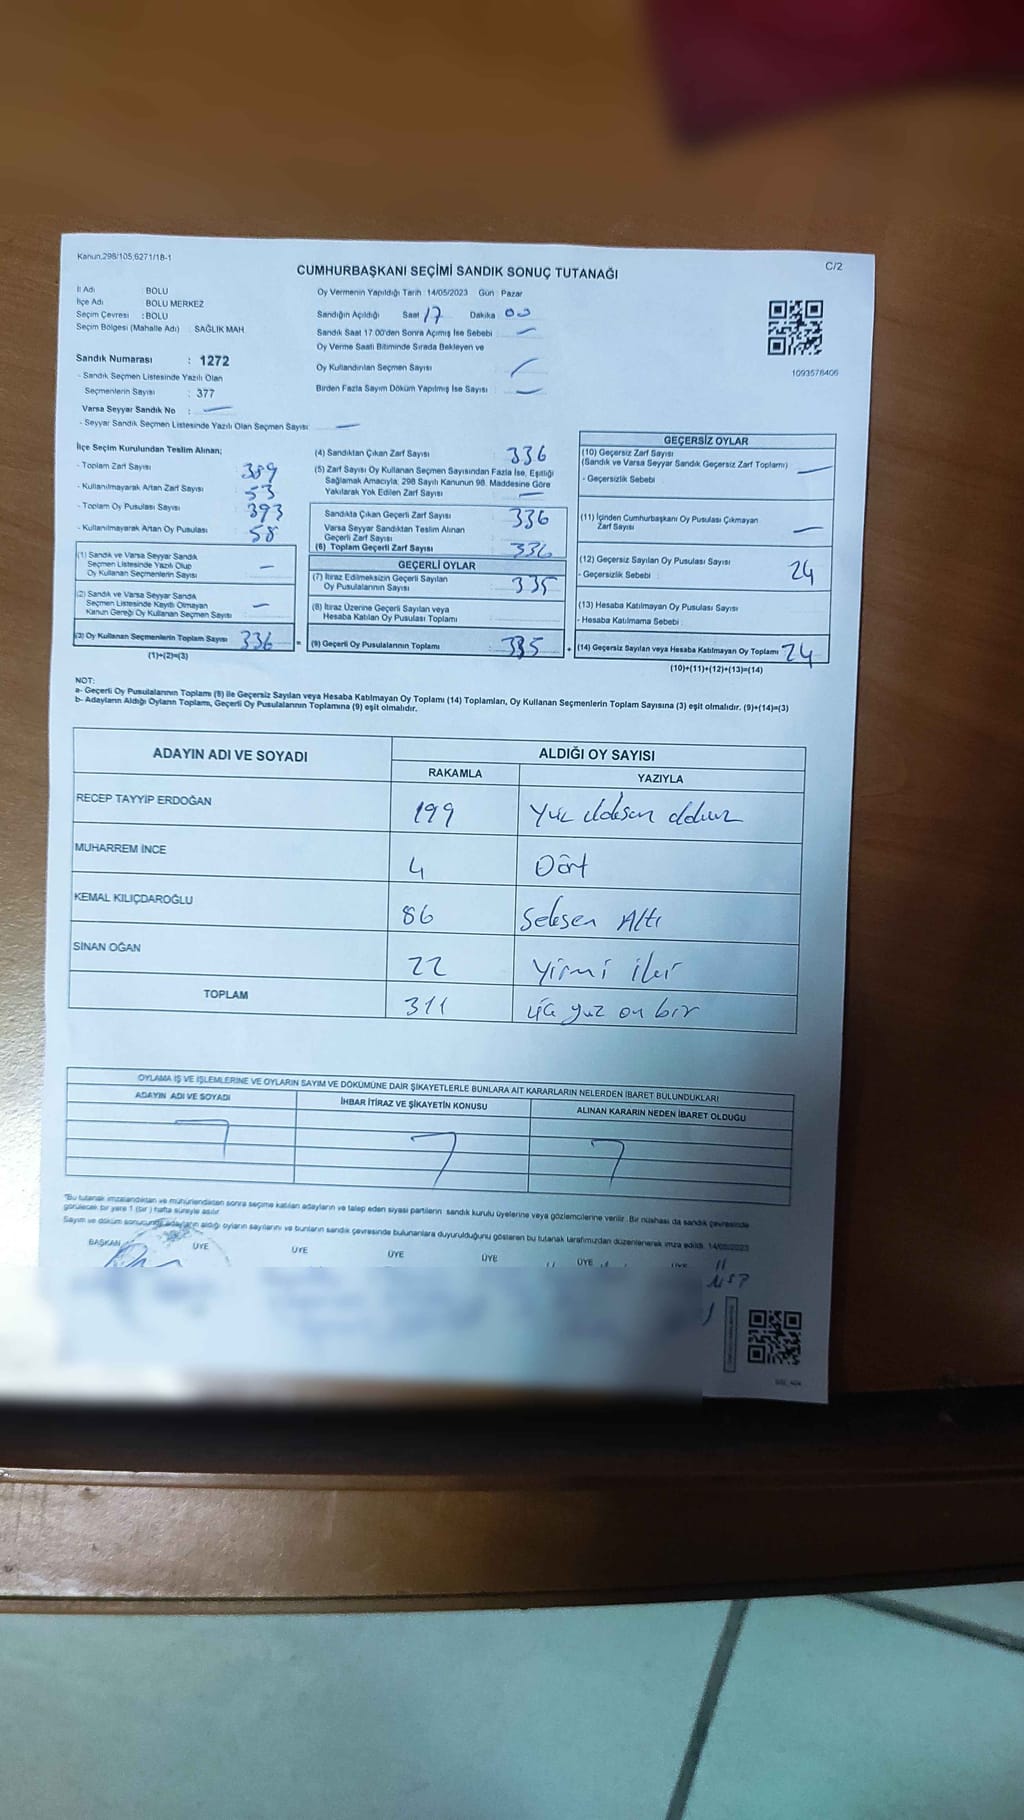 Kanun:298/105,6271/18-1
C/2
CUMHURBAŞKANI SEÇİMİ SANDIK SONUÇ TUTANAĞI
İl Adı : BOLU
İlçe Adı BOLU MERKEZ
Seçim Çevresi : BOLU
Seçim Bölgesi (Mahalle Adı) : SAĞLIK MAH.
Sandık Numarası : 1272
- Sandık Seçmen Listesinde Yazılı Olan
Seçmenlerin Sayısı : 377
Varsa Seyyar Sandık No : —
- Seyyar Sandık Seçmen Listesinde Yazılı Olan Seçmen Sayısı —
Oy Vermenin Yapıldığı Tarih : 14/05/2023 Gün : Pazar
Sandığın Açıldığı Saat 17 Dakika 00
Sandık Saat 17:00'den Sonra Açımış İse Sebebi —
Oy Verme Saati Bitiminde Sırada Bekleyen ve
Oy Kullandırılan Seçmen Sayısı —
Birden Fazla Sayım Döküm Yapılmış İse Sayısı —
1093578406
İlçe Seçim Kurulundan Teslim Alınan;
- Toplam Zarf Sayısı 389
- Kullanılmayarak Artan Zarf Sayısı 53
- Toplam Oy Pusulası Sayısı 393
- Kullanılmayarak Artan Oy Pusulası 58
(1) Sandık ve Varsa Seyyar Sandık
Seçmen Listesinde Yazılı Olup
Oy Kullanan Seçmenlerin Sayısı —
(2) Sandık ve Varsa Seyyar Sandık
Seçmen Listesinde Kayıtlı Olmayan
Kanun Gereği Oy Kullanan Seçmen Sayısı —
(3) Oy Kullanan Seçmenlerin Toplam Sayısı 336 =
(1)+(2)=(3)
(4) Sandıktan Çıkan Zarf Sayısı 336
(5) Zarf Sayısı Oy Kullanan Seçmen Sayısından Fazla İse, Eşitliği
Sağlamak Amacıyla, 298 Sayılı Kanunun 98. Maddesine Göre
Yakılarak Yok Edilen Zarf Sayısı —
Sandıkta Çıkan Geçerli Zarf Sayısı 336
Varsa Seyyar Sandıktan Teslim Alınan
Geçerli Zarf Sayısı
(6) Toplam Geçerli Zarf Sayısı 336
GEÇERLİ OYLAR
(7) İtiraz Edilmeksizin Geçerli Sayılan
Oy Pusulalarının Sayısı 335
(8) İtiraz Üzerine Geçerli Sayılan veya
Hesaba Katılan Oy Pusulası Toplamı
(9) Geçerli Oy Pusulalarının Toplamı 335 +
GEÇERSİZ OYLAR
(10) Geçersiz Zarf Sayısı
(Sandık ve Varsa Seyyar Sandık Geçersiz Zarf Toplamı) —
- Geçersizlik Sebebi
(11) İçinden Cumhurbaşkanı Oy Pusulası Çıkmayan
Zarf Sayısı —
(12) Geçersiz Sayılan Oy Pusulası Sayısı 24
- Geçersizlik Sebebi
(13) Hesaba Katılmayan Oy Pusulası Sayısı
- Hesaba Katılmama Sebebi
(14) Geçersiz Sayılan veya Hesaba Katılmayan Oy Toplamı 24
(10)+(11)+(12)+(13)=(14)
NOT:
a- Geçerli Oy Pusulalarının Toplamı (9) ile Geçersiz Sayılan veya Hesaba Katılmayan Oy Toplamı (14) Toplamları, Oy Kullanan Seçmenlerin Toplam Sayısına (3) eşit olmalıdır. (9)+(14)=(3)
b- Adayların Aldığı Oyların Toplamı, Geçerli Oy Pusulalarının Toplamına (9) eşit olmalıdır.
ADAYIN ADI VE SOYADI ALDIĞI OY SAYISI
RAKAMLA YAZIYLA
RECEP TAYYİP ERDOĞAN 199 Yüz doksan dokuz
MUHARREM İNCE 4 Dört
KEMAL KILIÇDAROĞLU 86 Seksen Altı
SİNAN OĞAN 22 Yirmi iki
TOPLAM 311 üç yüz on bir
OYLAMA İŞ VE İŞLEMLERİNE VE OYLARIN SAYIM VE DÖKÜMÜNE DAİR ŞİKAYETLERLE BUNLARA AİT KARARLARIN NELERDEN İBARET BULUNDUKLARI
ADAYIN ADI VE SOYADI İHBAR İTİRAZ VE ŞİKAYETİN KONUSU ALINAN KARARIN NEDEN İBARET OLDUĞU
"Bu tutanak imzalandıktan ve mühürlendikten sonra seçime katılan adayların ve talep eden siyasi partilerin sandık kurulu üyelerine veya gözlemcilerine verilir. Bir nüshası da sandık çevresinde
görülecek bir yere 1 (bir ) hafta süreyle asılır.
Sayım ve döküm sonucunda adayların aldığı oyların sayılarını ve bunların sandık çevresinde bulunanlara duyurulduğunu gösteren bu tutanak tarafımızdan düzenlenerek imza edildi. 14/05/2023
BAŞKAN ÜYE ÜYE ÜYE ÜYE ÜYE